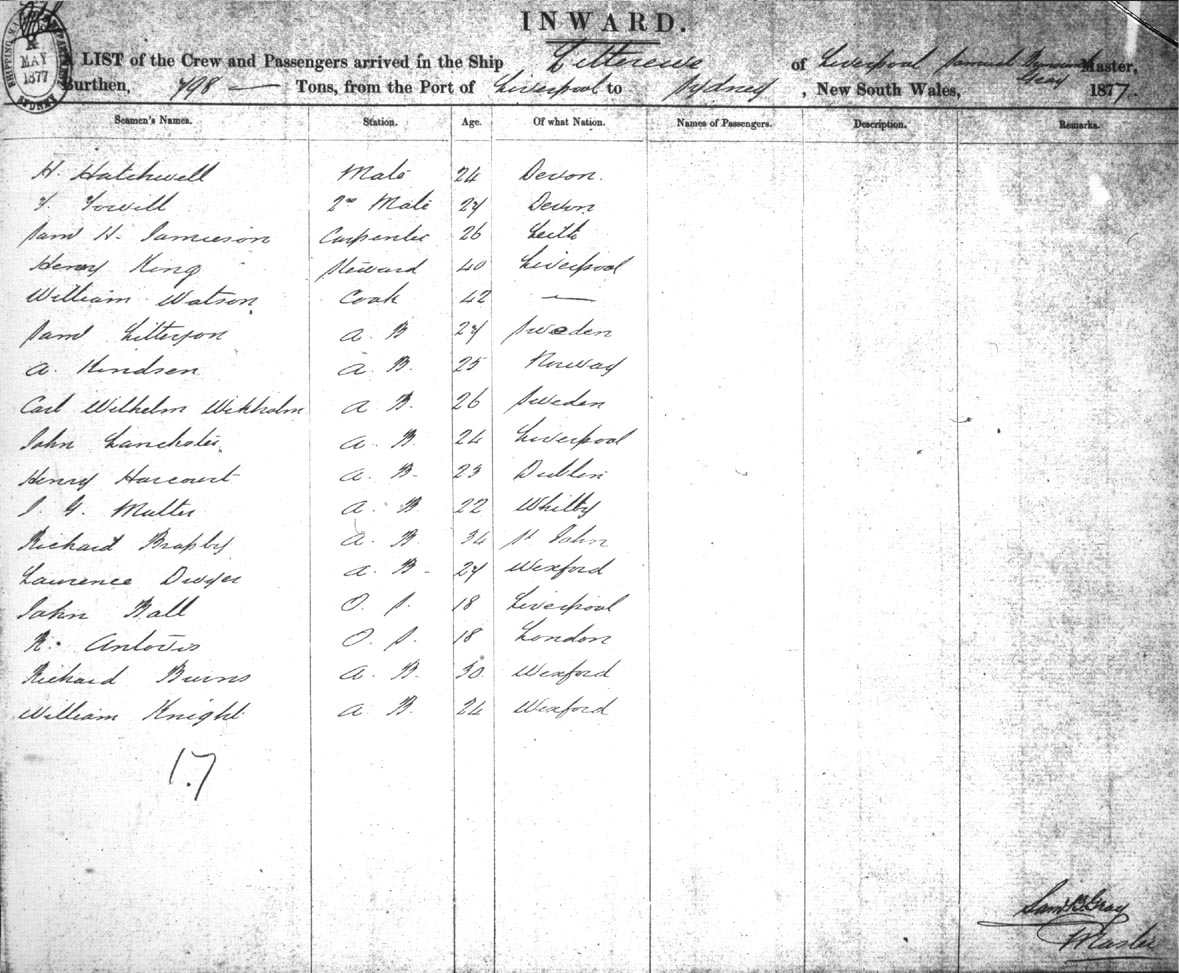 INWARD.
MAY
1877
SYDNEY
LIST of the Crew and Passengers arrived in the Ship Letterewe of Liverpool Samuel Gray Master,
Burthen, 798 Tons, from the Port of Liverpool to Sydney, New South Wales, 1877.
Seamen's Names. Station. Age. Of what Nation. Names of Passengers. Description. Remarks.
H. Hatchwell Mate 24 Devon.
Towell 2nd Mate 27 Devon
Saml H. Jamieson Carpenter 26 Leith
Henry King Steward 40 Liverpool
William Watson Cook 42 —
Saml A. B 27 Sweden
A. Kindsen A. B. 25 Norway
Carl Wilhelm Wickholm A B. 26 Sweden
John A. B 24 Liverpool
Henry Harcourt A. B. 23 Dublin
A. B 22 Whitby
Richard A. B. 34 St John
Lawrence Dwyer A. B 27 Wexford
John Ball O. S. 18 Liverpool
R. O. S. 18 London
Richard Burns A. B. 30 Wexford
William Knight A. B. 24 Wexford
17
Saml B. Gray
Master